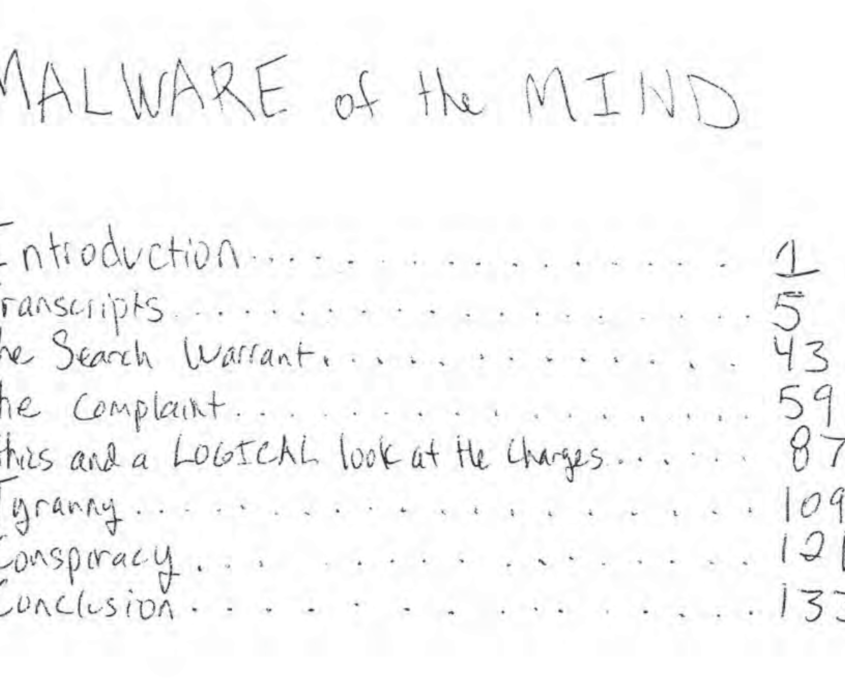 MALWARE of the MIND
Introduction . . . . . . . . . . . . . . . . . 1
ranscripts . . . . . . . . . . . . . . . . . . 5
he Search Warrant . . . . . . . . . . . . . 43
he Complaint . . . . . . . . . . . . . . . . 59
thics and a LOGICAL look at the Charges . . . . . . 87
Tyranny . . . . . . . . . . . . . . . . . . 109
Conspiracy . . . . . . . . . . . . . . . . . 121
Conclusion . . . . . . . . . . . . . . . . . 133